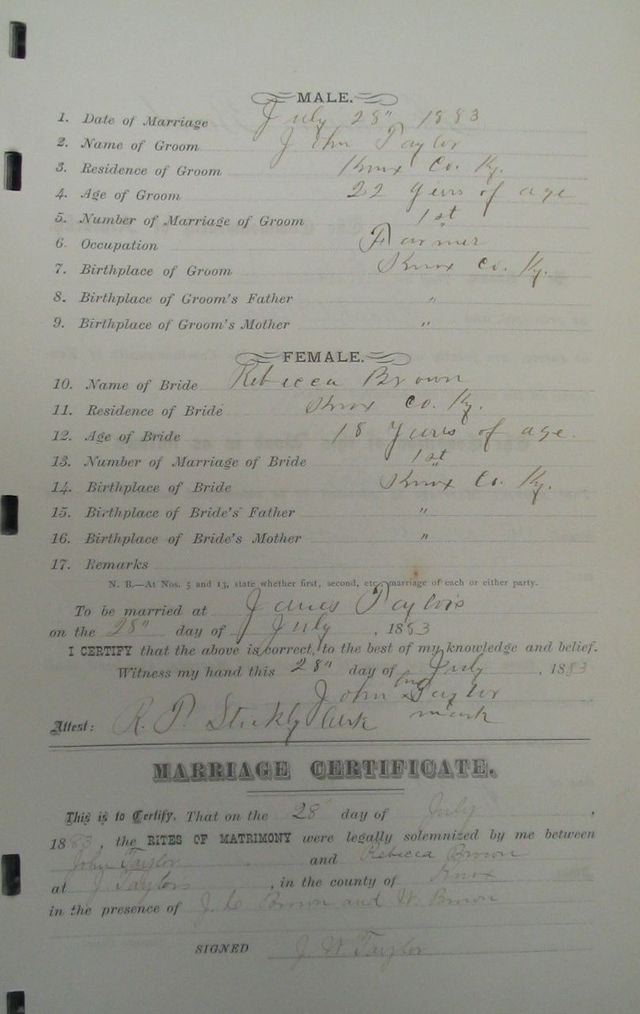 MALE.
1. Date of Marriage July 28" 1883
2. Name of Groom John Taylor
3. Residence of Groom Knox Co. Ky.
4. Age of Groom 22 years of age
5. Number of Marriage of Groom 1st
6. Occupation Farmer
7. Birthplace of Groom Knox Co. Ky.
8. Birthplace of Groom's Father "
9. Birthplace of Groom's Mother "
FEMALE.
10. Name of Bride Rebecca Brown
11. Residence of Bride Knox Co. Ky.
12. Age of Bride 18 years of age.
13. Number of Marriage of Bride 1st
14. Birthplace of Bride Knox Co. Ky.
15. Birthplace of Bride's Father "
16. Birthplace of Bride's Mother "
17. Remarks
N. B.—At Nos. 5 and 13, state whether first, second, etc., marriage of each or either party.
To be married at James Taylors
on the 28" day of July, 1883
I CERTIFY that the above is correct, to the best of my knowledge and belief.
Witness my hand this 28" day of July, 1883
John his x Taylor
mark
Attest: R. P. Stickly Clerk
MARRIAGE CERTIFICATE.
This is to Certify, That on the 28" day of July,
1883, the RITES OF MATRIMONY were legally solemnized by me between
John Taylor and Rebecca Brown
at J Taylors, in the county of Knox
in the presence of J. C Brown and W. Brown
SIGNED J. W. Taylor